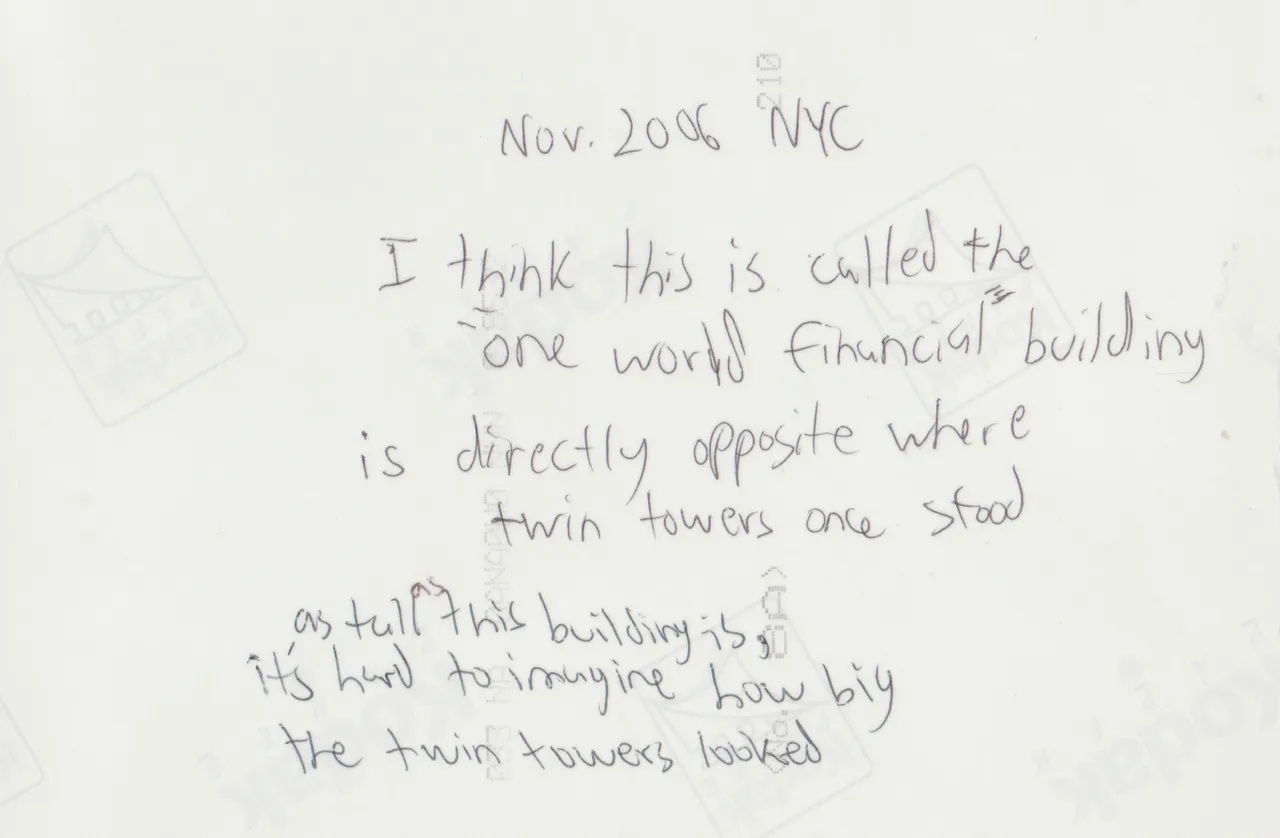 Nov. 2006 NYC
I think this is called the
"one world financial" building
is directly opposite where
twin towers once stood
as tall as this building is,
it's hard to imagine how big
the twin towers looked
210
Kodak
Kodak
Kodak
Kodak
Kodak